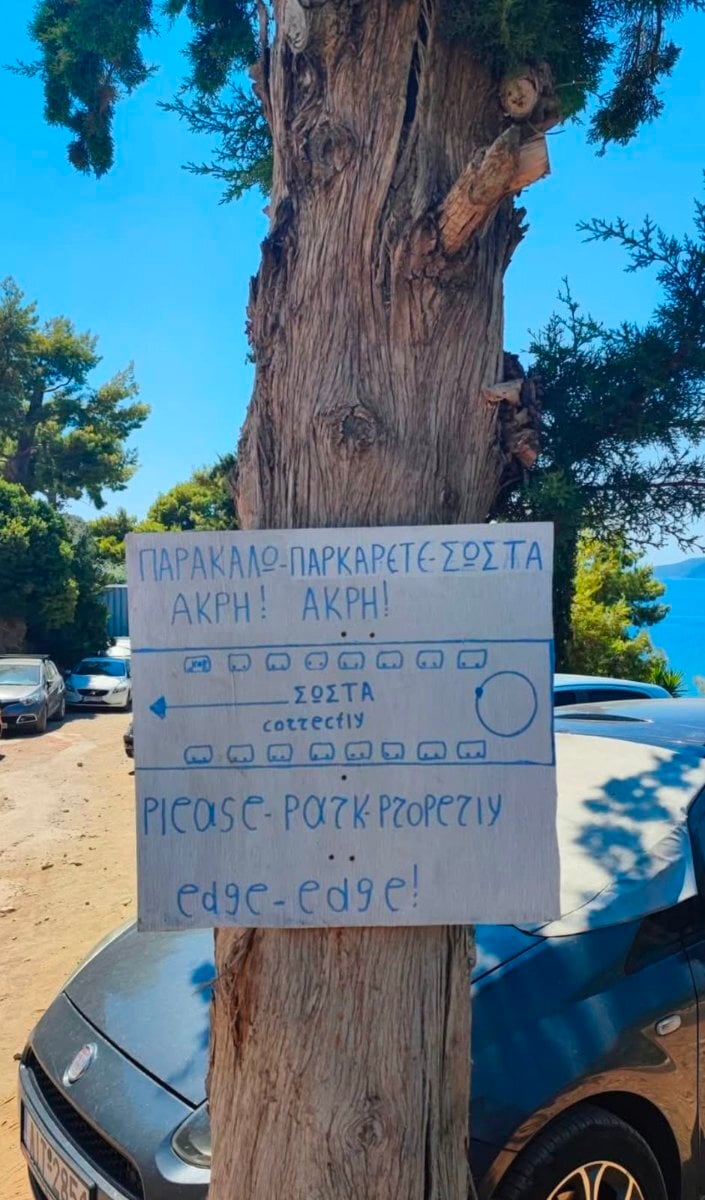 ΠΑΡΑΚΑΛΩ-ΠΑΡΚΑΡΕΤΕ-ΣΩΣΤΑ
ΑΚΡΗ! ΑΚΡΗ!
ΣΩΣΤΑ
correctly
Please-Park-Properly
edge-edge!
FIAT